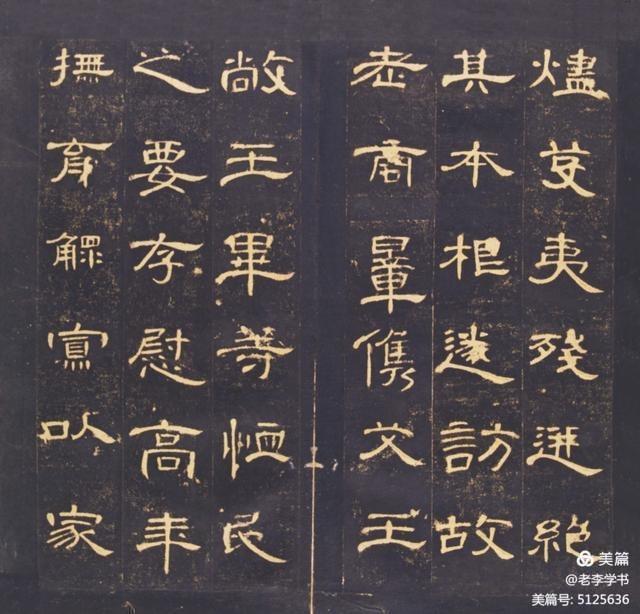 燼芟夷殘迸絕
其本根遂訪故
老商量儁艾王
敞王畢等恤民
之要存慰高年
撫育鰥寡以家
美篇
@老李学书
美篇号: 5125636